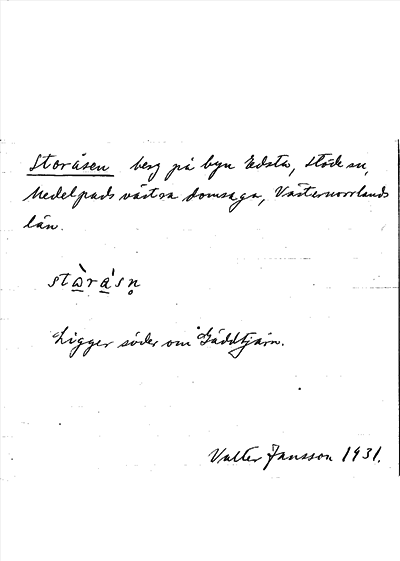 Storåsen berg på byn Edsta, Stöde sn,
Medelpads västra domsaga, Västernorrlands
län.
stàrásn̥
Ligger söder om Gäddtjärn.
Valter Jansson 1931.